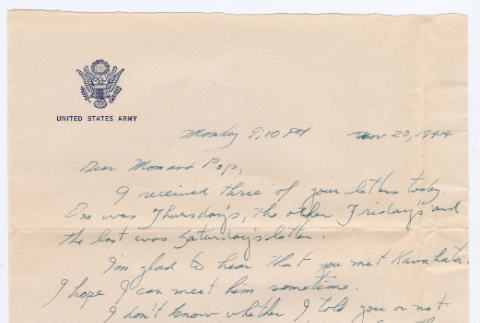 UNITED STATES ARMY
Monday 9:10 PM Nov 20, 1944
Dear Mom and Pop,
I received three of your letters today.
One was Thursday's, the other Friday's and
the last was Saturday's letter.
I'm glad to hear that you met Kawahata.
I hope I can meet him sometime.
I don't know whether I told you or not